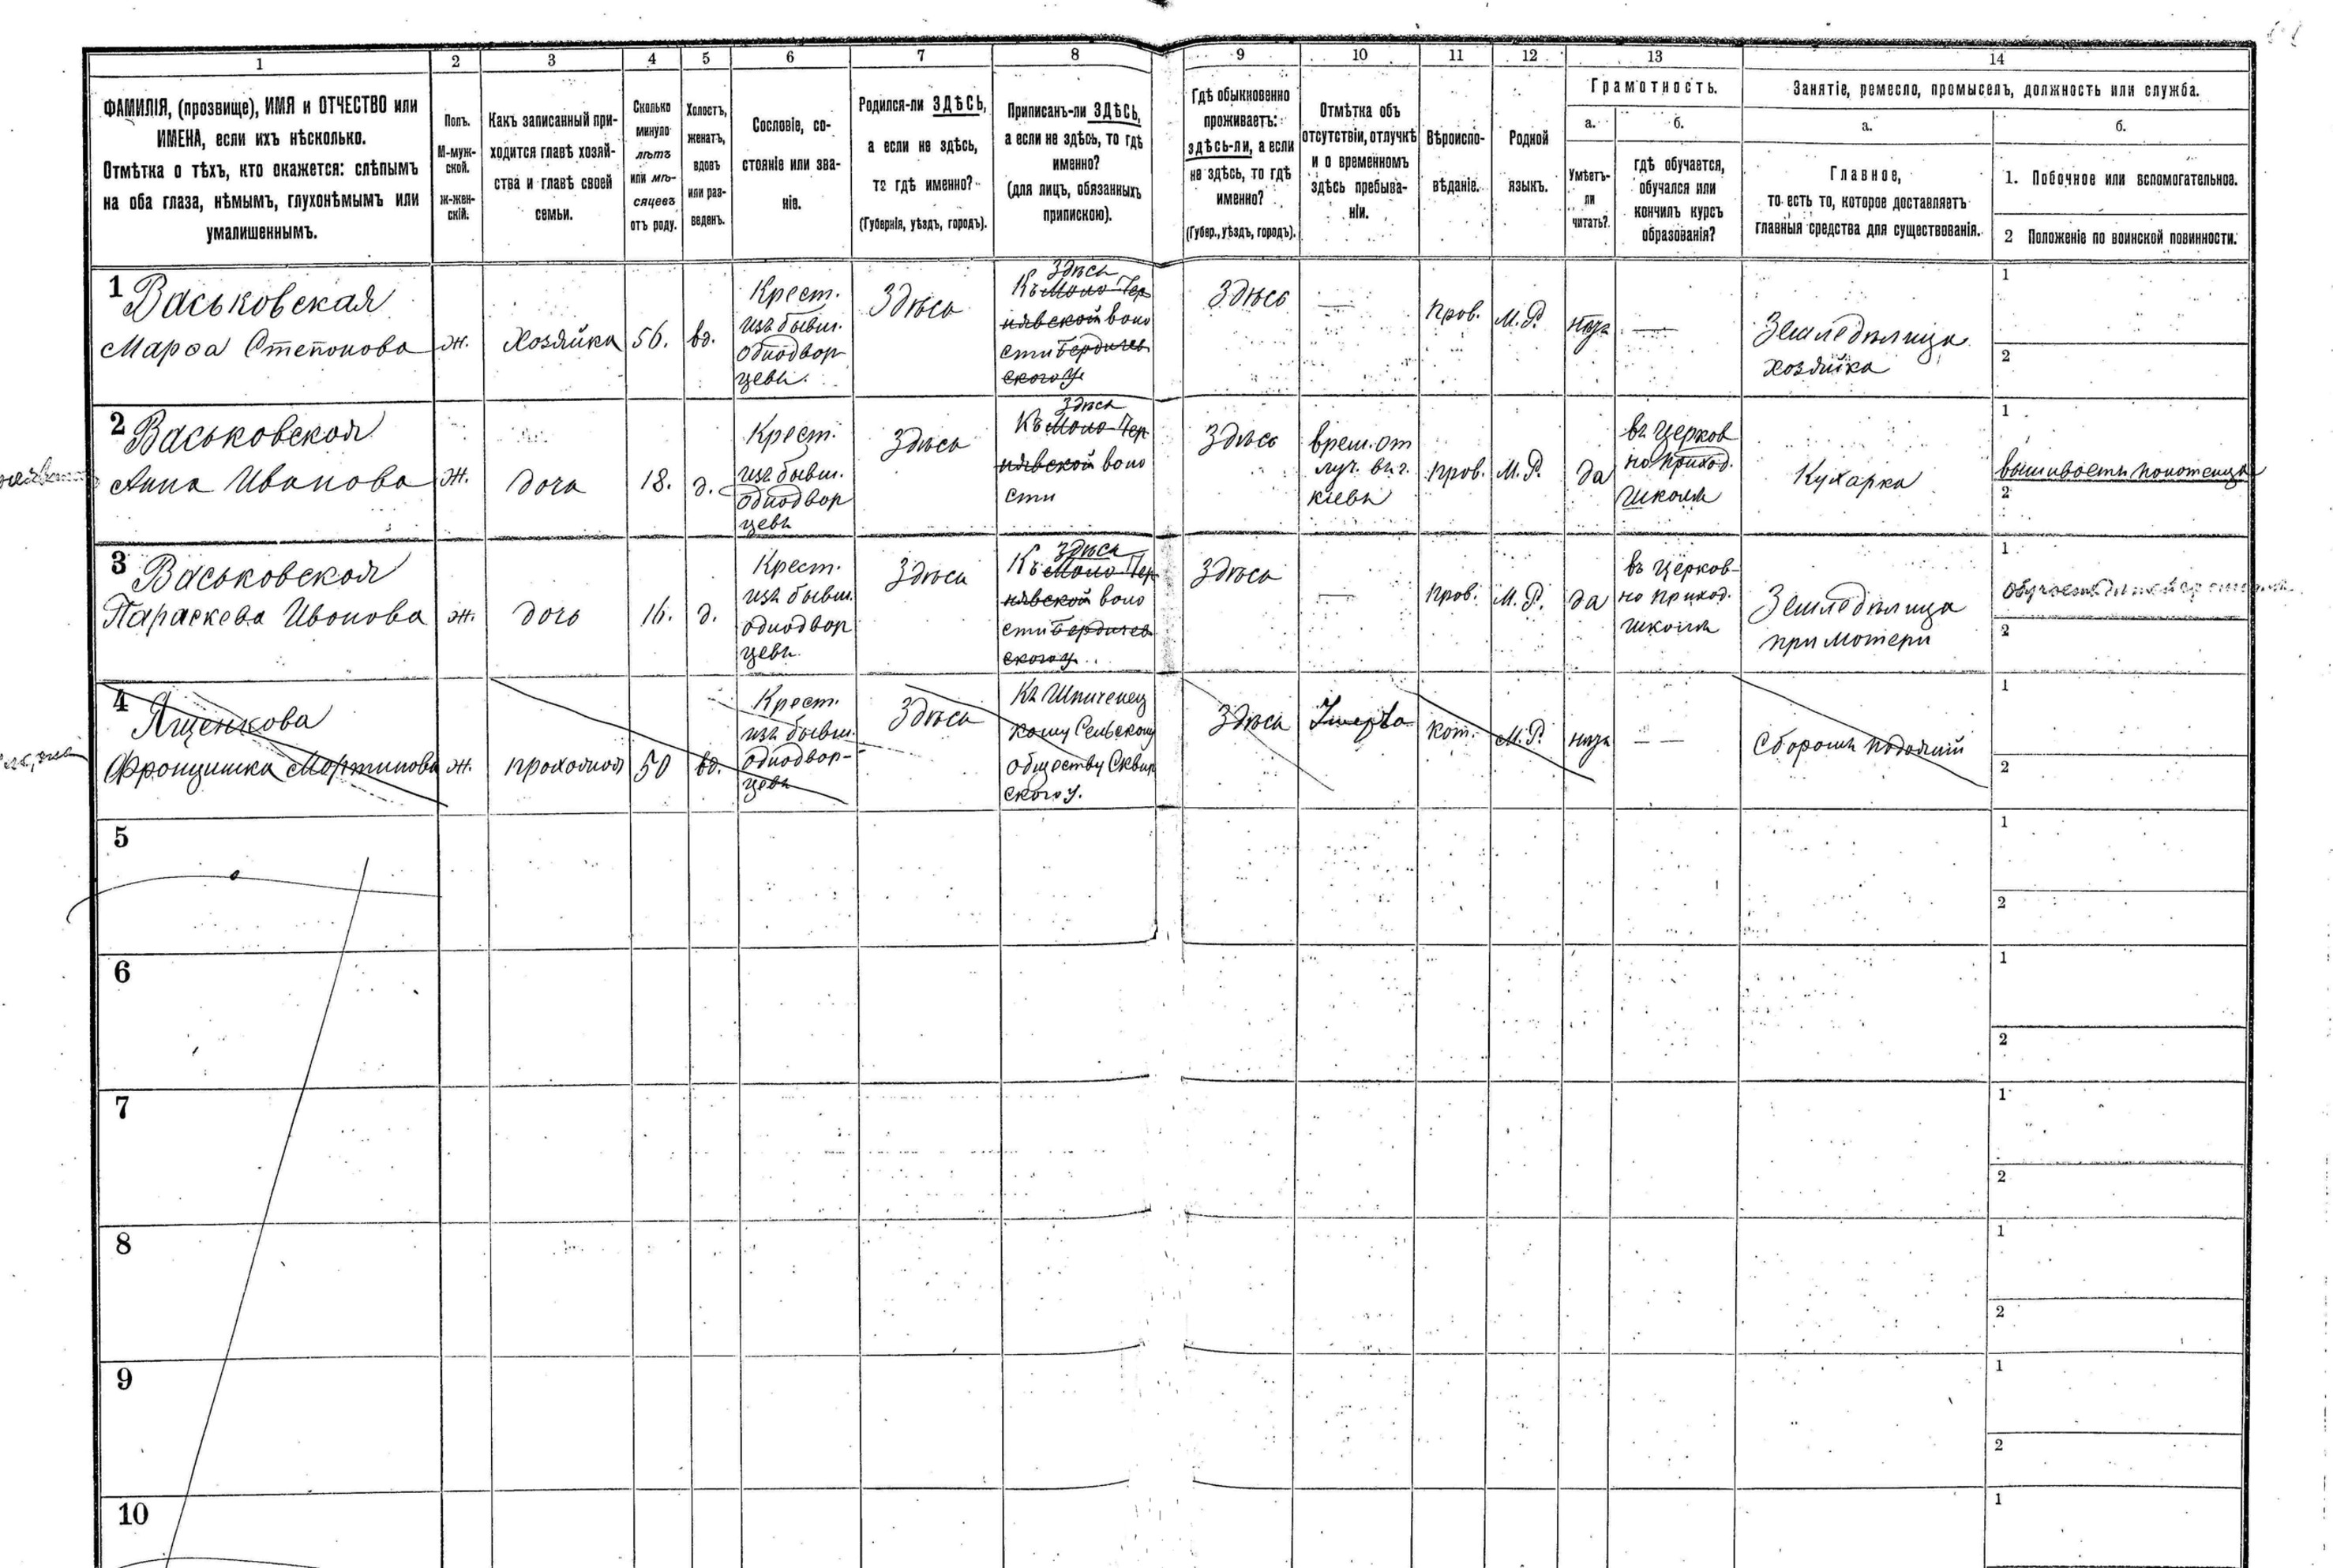 1 2 3 4 5 6 7 8 9 10 11 12 13 14
ФАМИЛІЯ, (прозвище), ИМЯ и ОТЧЕСТВО или
ИМЕНА, если ихъ нѣсколько.
Отмѣтка о тѣхъ, кто окажется: слѣпымъ
на оба глаза, нѣмымъ, глухонѣмымъ или
умалишеннымъ.
Полъ.
М-муж-
ской.
ж-жен-
скій.
Какъ записанный при-
ходится главѣ хозяй-
ства и главѣ своей
семьи.
Сколько
минуло
лѣтъ
или мѣ-
сяцевъ
отъ роду.
Холостъ,
женатъ,
вдовъ
или раз-
веденъ.
Сословіе, со-
стояніе или зва-
ніе.
Родился-ли ЗДѢСЬ,
а если не здѣсь,
то гдѣ именно?
(Губернія, уѣздъ, городъ).
Приписанъ-ли ЗДѢСЬ,
а если не здѣсь, то гдѣ
именно?
(для лицъ, обязанныхъ
припискою).
Гдѣ обыкновенно
проживаетъ:
здѣсь-ли, а если
не здѣсь, то гдѣ
именно?
(Губер., уѣздъ, городъ).
Отмѣтка объ
отсутствіи, отлучкѣ
и о временномъ
здѣсь пребыва-
ніи.
Вѣроиспо-
вѣданіе.
Родной
языкъ.
Грамотность.
а.
Умѣетъ-
ли
читать?
б.
гдѣ обучается,
обучался или
кончилъ курсъ
образованія?
Занятіе, ремесло, промыселъ, должность или служба.
а.
Главное,
то есть то, которое доставляетъ
главныя средства для существованія.
б.
1. Побочное или вспомогательное.
2 Положеніе по воинской повинности.
1
Васьковская
Марѳа Степонова
ж.
хозяйка
56.
вд.
Крест.
изъ бывш.
однодвор
цевъ.
Здѣсь
Здѣсь
Къ Мало-Чер
нявской воло
сти Бердичев
ского у.
Здѣсь
—
Прав.
М. Р.
нѣтъ
—
Земледѣлица
хозяйка
1
2
2
Васьковская
Анна Иванова
ж.
дочь
18.
д.
Крест.
изъ бывш.
однодвор
цевъ
Здѣсь
Здѣсь
Къ Мало-Чер
нявской воло
сти
Здѣсь
врем. от
луч. въ г.
Кіевъ
Прав.
М. Р.
да
въ церков
но приход.
школѣ
Кухарка
1
вышиваетъ полотенца
2
3
Васьковская
Параскева Иванова
ж.
дочь
16.
д.
Крест.
изъ бывш.
однодвор
цевъ.
Здѣсь
Здѣсь
Къ Мало-Чер
нявской воло
сти Бердичев
ского у.
Здѣсь
—
Прав.
М. Р.
да
въ церков-
но приход.
школѣ
Земледѣлица
при матери
1
2
4
Ященкова
Францишка Мартинова
ж.
50
вд.
Крест.
изъ бывш.
однодвор-
цевъ
Здѣсь
Къ Шпиченец
кому Сельскому
обществу Сквир
ского у.
Здѣсь
Умерла
кат.
М. Р.
нѣтъ
— —
Сборомъ подаяній
1
2
5
1
2
6
1
2
7
1
2
8
1
2
9
1
2
10
1